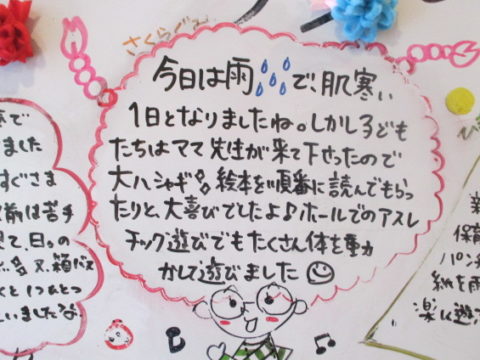 さくらぐみ
今日は雨で、肌寒い
1日となりましたね。しかし子ども
たちはママ先生が来て下さったので
大ハシャギ♪♪絵本を順番に読んでもらっ
たりと、大喜びでしたよ♪ホールでのアスレ
チック遊びでもたくさん体を動
かして遊びました☺
で
ました
すぐさま
は苦手
て、日。の
箱バス
くと1つひとつ
いました
新
保育
パンチ
紙を
楽しく遊